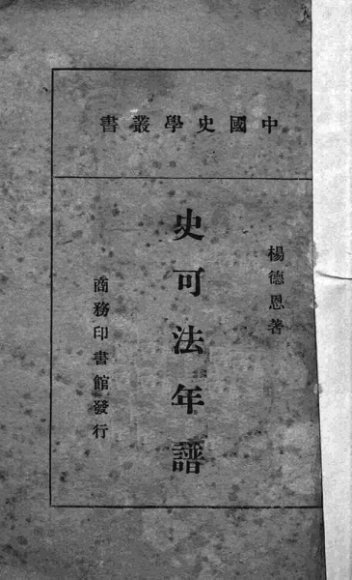 中國史學叢書
楊德恩著
史可法年譜
商務印書館發行